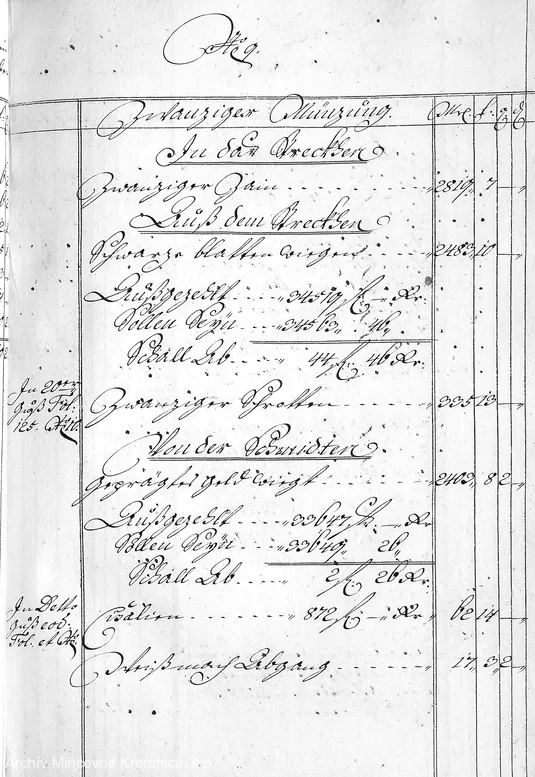 No 9.
Zwanziger Münzung. Mrk. l. q. d
In das Streckhen
Zwanziger Zain - - - 2819,, 7 — ,,
Auß dem Streckhen
Schwarze blatten wiegen - - - 2483,, 10 — ,,
Außgezehlt - - - ,, 34519,, fl. — ,, Kr.
Sollen Seyn - - - ,, 34563,, 46,,
Schall Ab - - ,, 44,, fl. 46 Kr.
In 20er
Guß Fol:
125.
Zwanziger Schrotten - - - 335 13 — ,,
Von der Schmidten
Geprägtes Geld wiegt - - - 2403,, 8 2 — ,,
Außgezehlt - - - ,, 33647,, fl. — Kr
Sollen Seyn - - - ,, 33649,, 26,,
Schall Ab. - - - ,, 2,, fl. 26 Kr.
In Detto
Guß eod:
Fol. et
Cisalien - - - ,, 872,, fl. — ,, Kr ,, 62 14 — ,,
Weißmach Abgang - - - ,, 17,, 3 2 — ,,
Archiv Mincovne Kremnica, š.p.